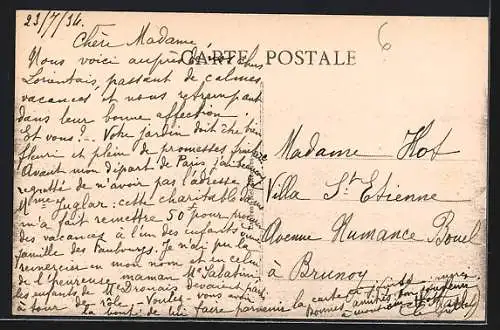 23/7/34.
6
Chère Madame
CARTE POSTALE
Nous voici auprès de nos chers
Lorientais, passant de calmes
vacances et nous retrempant
dans leur bonne affection.
Et vous? - Votre jardin doit être bien
fleuri et plein de promesses
Avant mon départ de Paris j'ai
regretté de n'avoir pas l'adresse de
Mme Juglar: cette charitable
m'a fait remettre 50f pour
des vacances à l'un des enfants
famille des Faubourgs. Je n'ai pu la
remercier en mon nom et en celui
de l'heureuse maman Me Sabatini
les enfants de Drouais devaient partir
à tour de rôle - Voulez-vous avoir
la bonté de lui faire parvenir la carte
Madame Hot
Villa St Etienne
Avenue
à Brunoy
Bonnes amitiés